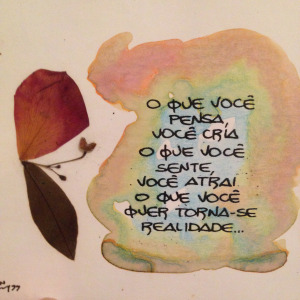 O QUE VOCÊ
PENSA,
VOCÊ CRIA
O QUE VOCÊ
SENTE,
VOCÊ ATRAI
O QUE VOCÊ
QUER TORNA-SE
REALIDADE...